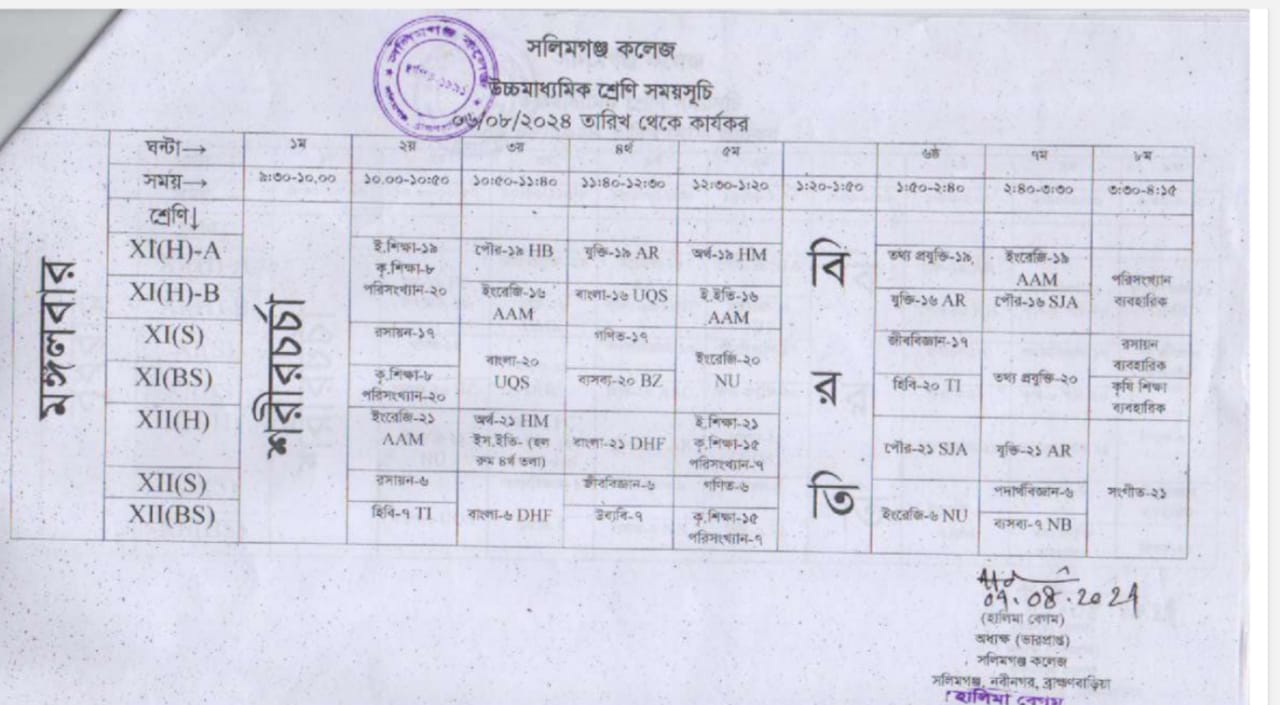 সলিমগঞ্জ কলেজ
উচ্চমাধ্যমিক শ্রেণি সময়সূচি
০৬/০৮/২০২৪ তারিখ থেকে কার্যকর
সলিমগঞ্জ কলেজ
ঘন্টা→ ১ম ২য় ৩য় ৪র্থ ৫ম ৬ষ্ঠ ৭ম ৮ম
সময়→ ৯:৩০-১০.০০ ১০.০০-১০:৫০ ১০:৫০-১১:৪০ ১১:৪০-১২:৩০ ১২:৩০-১:২০ ১:২০-১:৫০ ১:৫০-২:৪০ ২:৪০-৩:৩০ ৩:৩০-৪:১৫
শ্রেণি↓
মঙ্গলবার
শরীরচর্চা
বিরতি
XI(H)-A ই.শিক্ষা-১৯ পৌর-১৯ HB যুক্তি-১৯ AR অর্থ-১৯ HM তথ্য প্রযুক্তি-১৯ ইংরেজি-১৯
কৃ.শিক্ষা-৮ AAM পরিসংখ্যান
XI(H)-B পরিসংখ্যান-২০ ইংরেজি-১৬ বাংলা-১৬ UQS ই.ইতি-১৬ যুক্তি-১৬ AR পৌর-১৬ SJA ব্যবহারিক
AAM AAM
XI(S) রসায়ন-১৭ গণিত-১৭ জীববিজ্ঞান-১৭ রসায়ন
বাংলা-২০ ইংরেজি-২০ ব্যবহারিক
XI(BS) কৃ.শিক্ষা-৮ UQS ব্যসব্য-২০ BZ NU হিবি-২০ TI তথ্য প্রযুক্তি-২০ কৃষি শিক্ষা
পরিসংখ্যান-২০ ব্যবহারিক
XII(H) ইংরেজি-২১ অর্থ-২১ HM ই.শিক্ষা-২১
AAM ইস.ইতি- (হল বাংলা-২১ DHF কৃ.শিক্ষা-১৫ পৌর-২১ SJA যুক্তি-২১ AR
রুম ৪র্থ তলা) পরিসংখ্যান-৭
XII(S) রসায়ন-৬ জীববিজ্ঞান-৬ গণিত-৬ পদার্থবিজ্ঞান-৬ সংগীত-২১
XII(BS) হিবি-৭ TI বাংলা-৬ DHF উব্যবি-৭ কৃ.শিক্ষা-১৫ ইংরেজি-৬ NU ব্যসব্য-৭ NB
পরিসংখ্যান-৭
(হালিমা বেগম)
অধ্যক্ষ (ভারপ্রাপ্ত)
সলিমগঞ্জ কলেজ
সলিমগঞ্জ, নবীনগর, ব্রাহ্মণবাড়িয়া
হালিমা বেগম